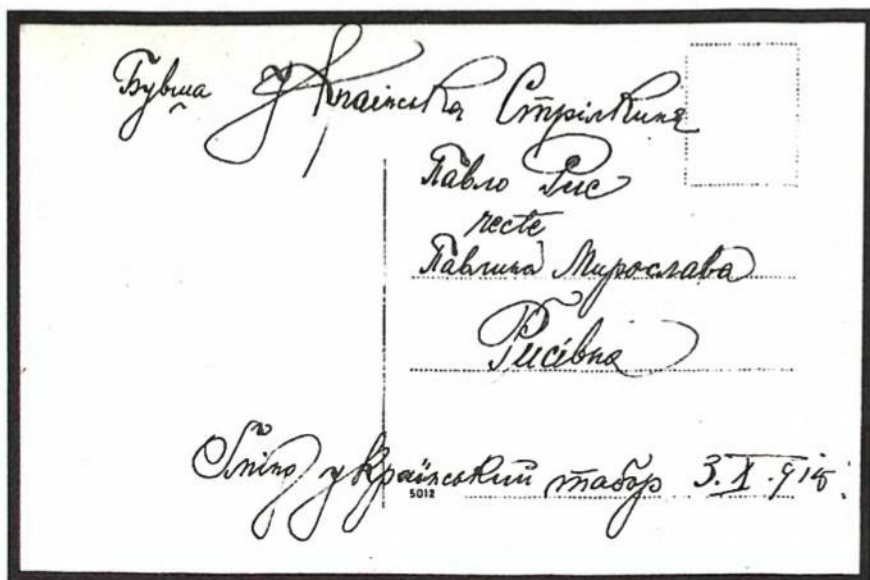 Бувша Українська Стрілкиня
Павло Рис
recte
Павлина Мирослава
Рисівна
Ґміно український табор 3.X.915.
5012